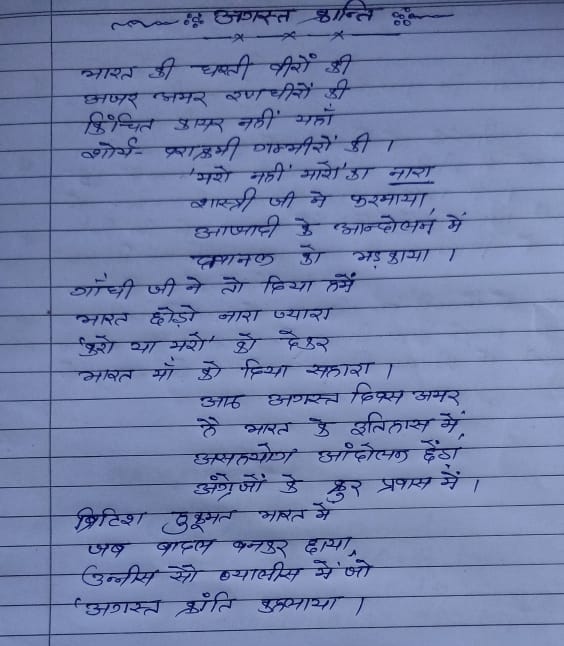 अगस्त क्रान्ति
भारत की धरती वीरों की
अजर अमर रणधीरों की
किंचित कायर नहीं यहाँ
शोर्य- पराक्रमी गम्भीरों की ।
'मरो नहीं मारो' का नारा
शास्त्री जी ने फरमाया,
आजादी के आन्दोलन में
दावानल को भड़काया ।
गाँधी जी ने तो दिया हमें
भारत छोड़ो नारा प्यारा
'करो या मरो' को देकर
भारत माँ को दिया सहारा ।
आठ अगस्त दिवस अमर
है भारत के इतिहास में,
असहयोग आंदोलन छेड़ा
अंग्रेजों के क्रुर प्रवास में ।
ब्रिटिश हुकूमत भारत में
जब बादल बनकर छाया,
उन्नीस सौ ब्यालीस में जो
'अगस्त क्रांति कहलाया ।